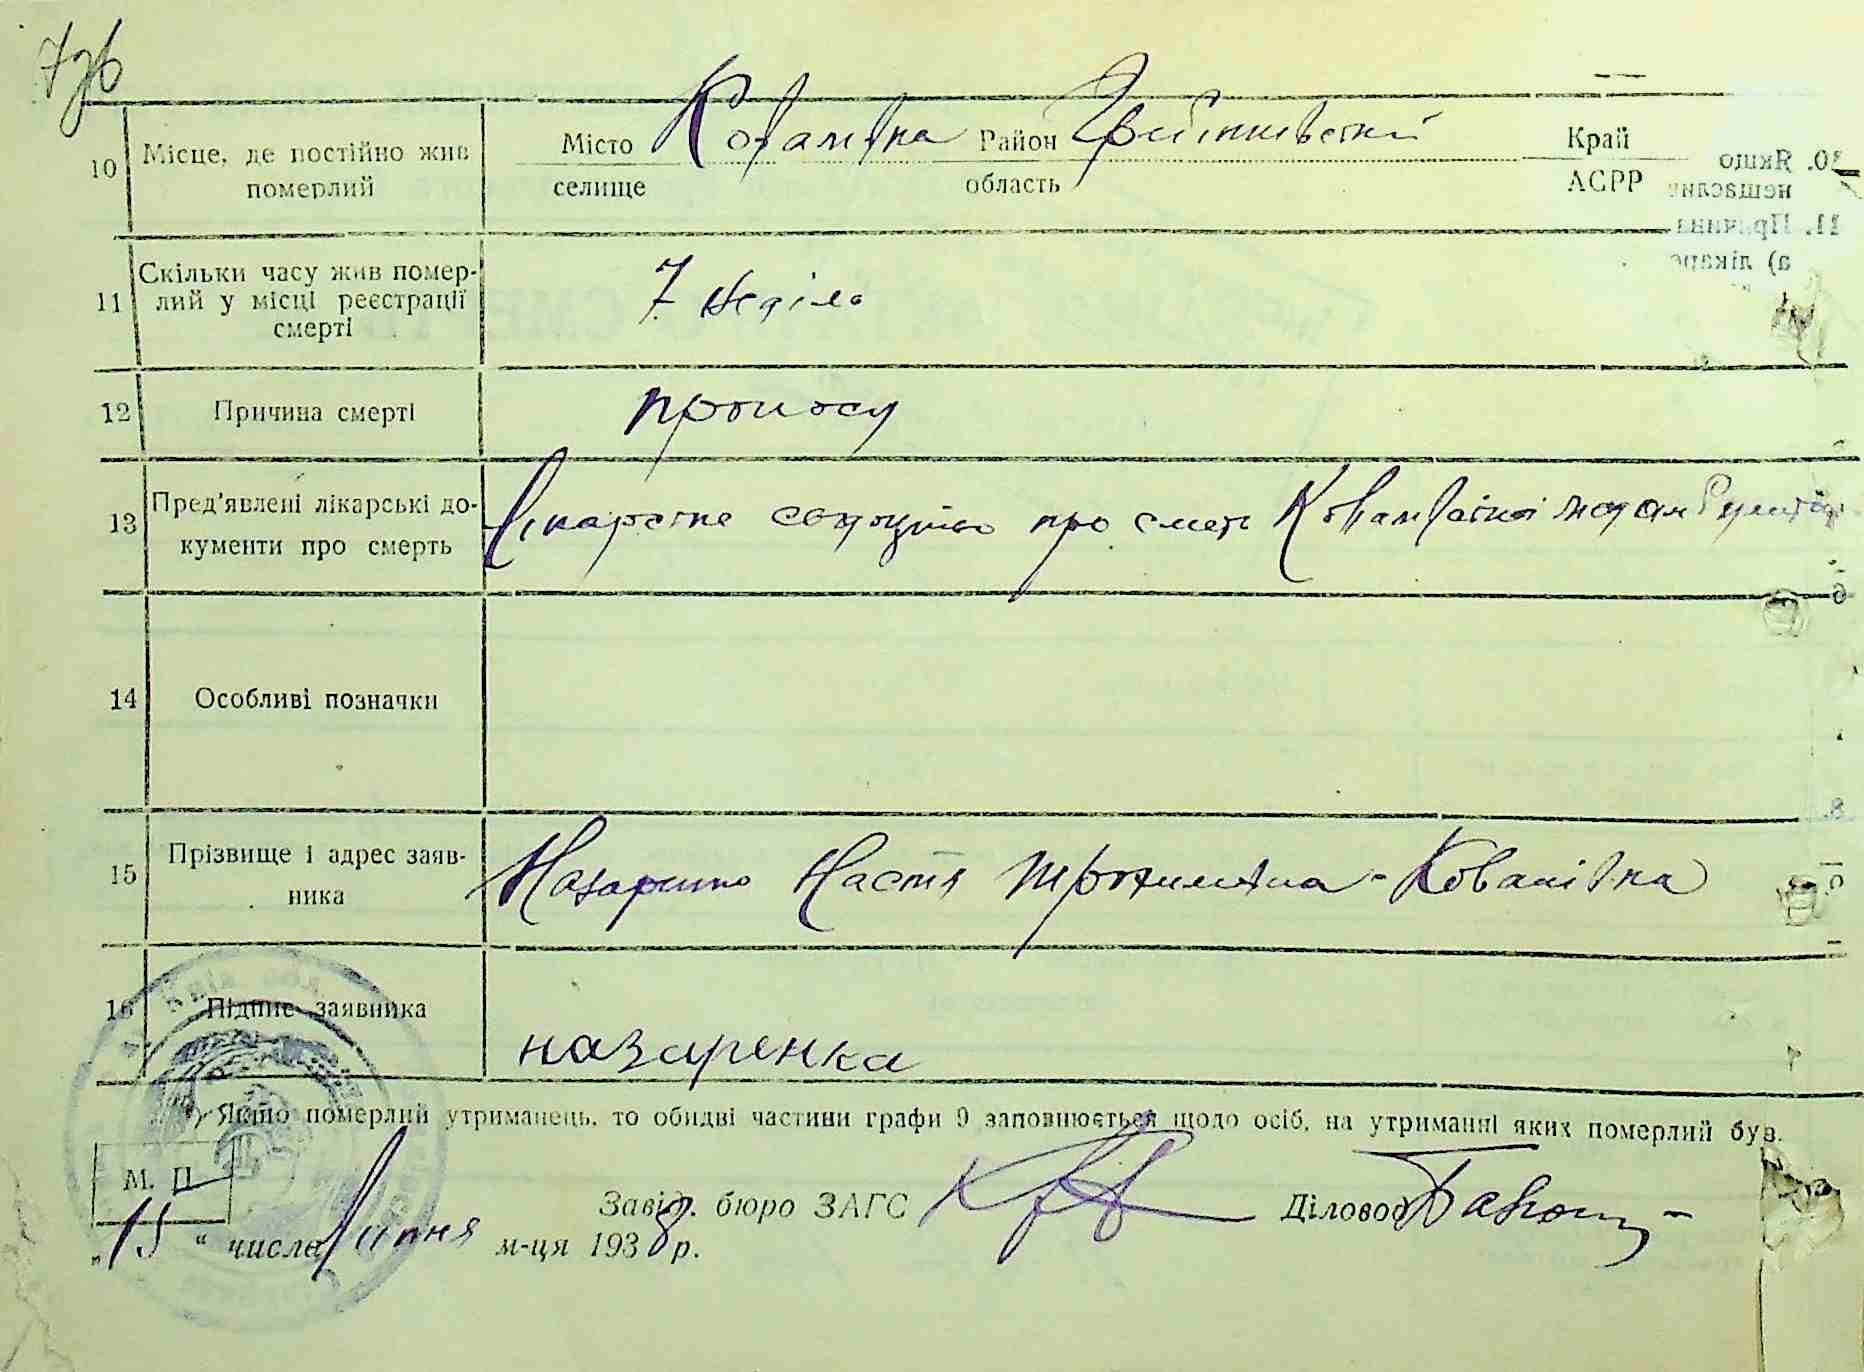 10 Місце, де постійно жив померлий
Місто селище Ковалівка Район область Край АСРР
11 Скільки часу жив померлий у місці реєстрації смерті
7 неділь
12 Причина смерті
проносу
13 Пред'явлені лікарські документи про смерть
Лікарське про смерть
14 Особливі позначки
15 Прізвище і адрес заявника
Назаренко Настя Ковалівка
16 Підпис заявника
назаренка
Якщо померлий утриманець, то обидві частини графи 9 заповнюється щодо осіб, на утриманні яких померлий був.
М. П.
Завід. бюро ЗАГС Діловод
„15“ числа липня м-ця 1938 р.
10. Якщо
нещаслив
11. Причина
а) лікаре